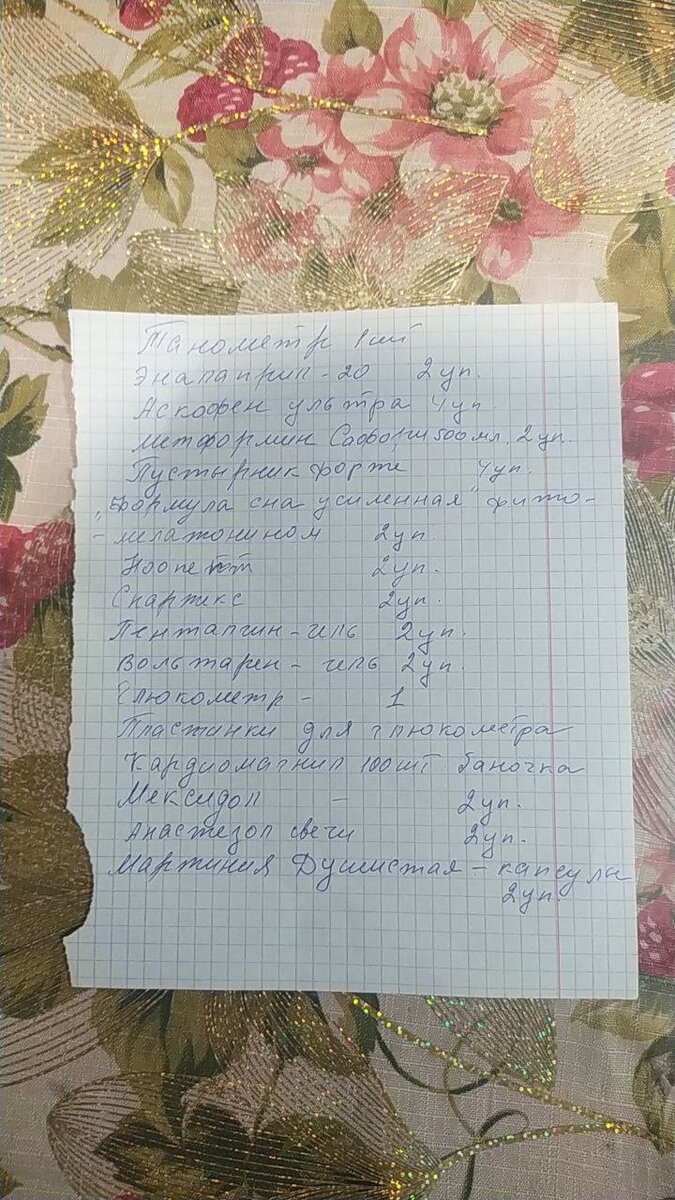 Танометр 1шт
Эналаприл - 20 2уп.
Аскофен ультра 4уп.
Метформин 500мл. 2уп.
Пустырник форте 4уп.
"Формула сна усиленная" фито-
- мелатонином 2уп.
Ноопепт 2уп.
Спартекс 2уп.
Пенталгин - гель 2уп.
Вольтарен - гель 2уп.
Глюкометр - 1
Пластинки для глюкометра
Кардиомагнил 100шт баночка
Мексидол - 2уп.
Анастезол свечи 2уп.
Мартиния Душистая - капсулы
2уп.